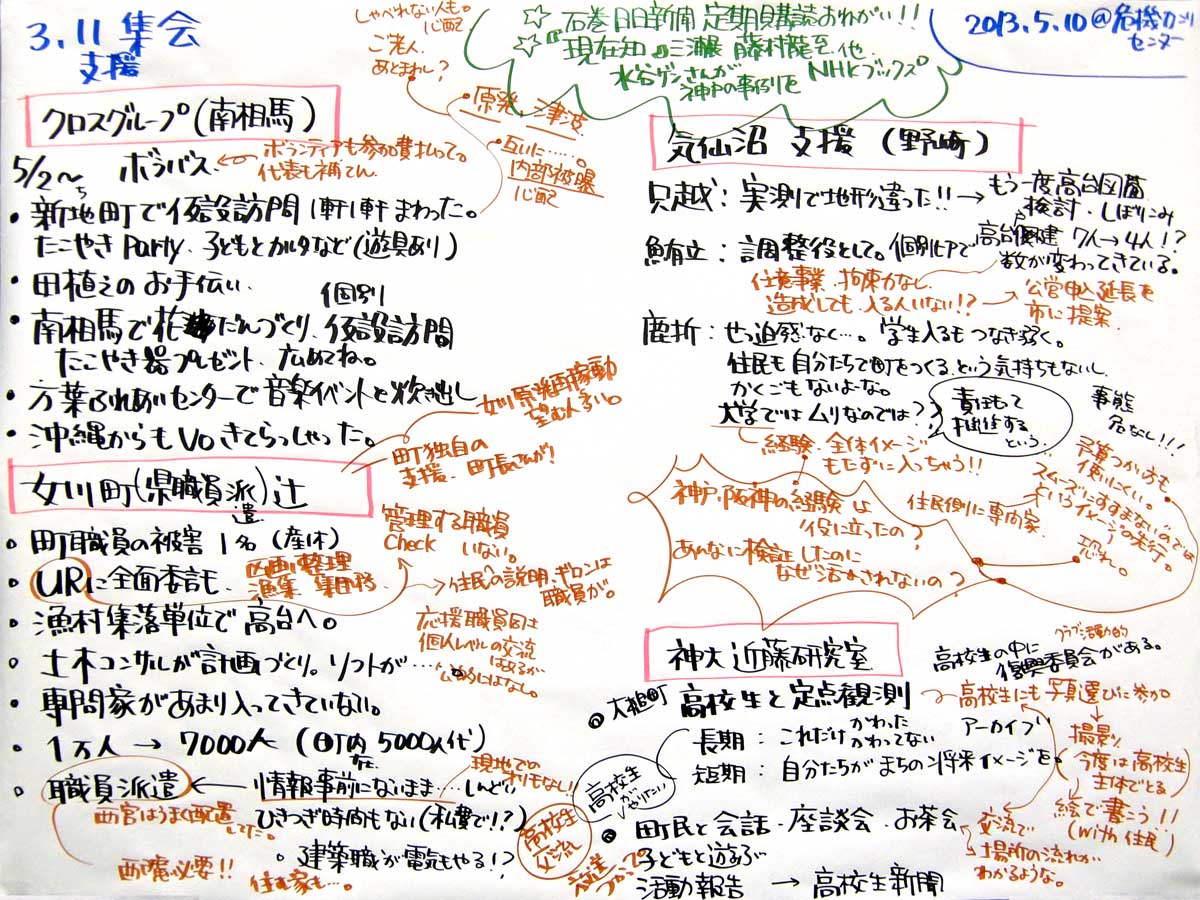 3.11 集会
支援
しゃべれない人も。
心配
ご老人
あとまわし?
☆ 石巻日日新聞 定期購読おねがい!!
☆ 現在知
藤村龍至 他
NHKブックス
水谷ゲンさんが
神戸の事例を
2013.5.10 @危機カンリ
センター
クロスグループ(南相馬)
5/2~
ボラバス
ボランティアも参加費払って。
代表も補てん
・原発、津波
・互いに……。
内部被曝
心配
・新地町で仮設訪問 1軒1軒まわった。
たこやきParty、子どもとカルタなど(遊具あり)
・田植えのお手伝い
・南相馬で花だんづくり、仮設訪問
個別
たこやき器プレゼント、広めてね。
・方葉ふれあいセンターで音楽イベントと炊き出し
・沖縄からもVoきてらっしゃった。
女川原発再稼動
望む人多い。
町独自の
支援、町長さんが!
女川町(県職員派遣)辻
・町職員の被害 1名(産休)
・URに全面委託
区画整理
漁集 集団移
管理する職員
Check いない。
→住民への説明、ギロンは
職員が。
・漁村集落単位で高台へ。
応援職員同士
個人レベルの交流
はあるが
公的にはなし。
・土木コンサルが計画づくり。ソフトが……
・専門家があまり入ってきていない。
・1万人→7000人(町内 5000人代)
在
・職員派遣←情報事前にないまま…しんどい
現地での
オリもない!
西宮はうまく配置
してた。
ひきつぎ時間もない(私費で!?)
・建築職が電気もやる!?
西隣必要!!
住む家も…。
気仙沼 支援(野崎)
只越:実測で地形違った!!→もう一度高台図面
検討・しぼりこみ
鮪立:調整役として。個別ヒアで
高台戸建 7人→4人!?
数が変わってきている。
任意事業、拘束力なし
造成しても、入る人いない!?→公営申込延長を
市に提案。
鹿折:せっ迫感なく…。学生入るもつなぎ弱く。
住民も自分たちで町をつくる、という気持ちもないし
かくごもないよな。
大学ではムリなのでは??
責任もって
推進する
という
事態
危なし!!!
経験、全体イメージ
もたずに入っちゃう!!
神戸、阪神の経験は
役に立ったの?
あんなに検証したのに
なぜ活かされないの?
住民側に専門家
予算つかい方も
使いにくい。
"スムーズにすすまない"のでは
というイメージの先行。
恐れ。
神大 近藤研究室
クラブ活動的
高校生の中に
復興委員会がある。
・大槌町 高校生と定点観測
長期:これだけ かわった
かわってない
アーカイブ
短期:自分たちがまちの将来イメージを。
~高校生にも写真選びに参加。
撮影
(今度は高校生
主体でとる)
絵で書こう!!
(with 住民)
高校生
が
やりたい
高校生
交流
・町民と会話・座談会・お茶会
子どもと遊ぶ
交流で
場所の流れが
わかるような。
活動報告 → 高校生新聞
放送
つかって